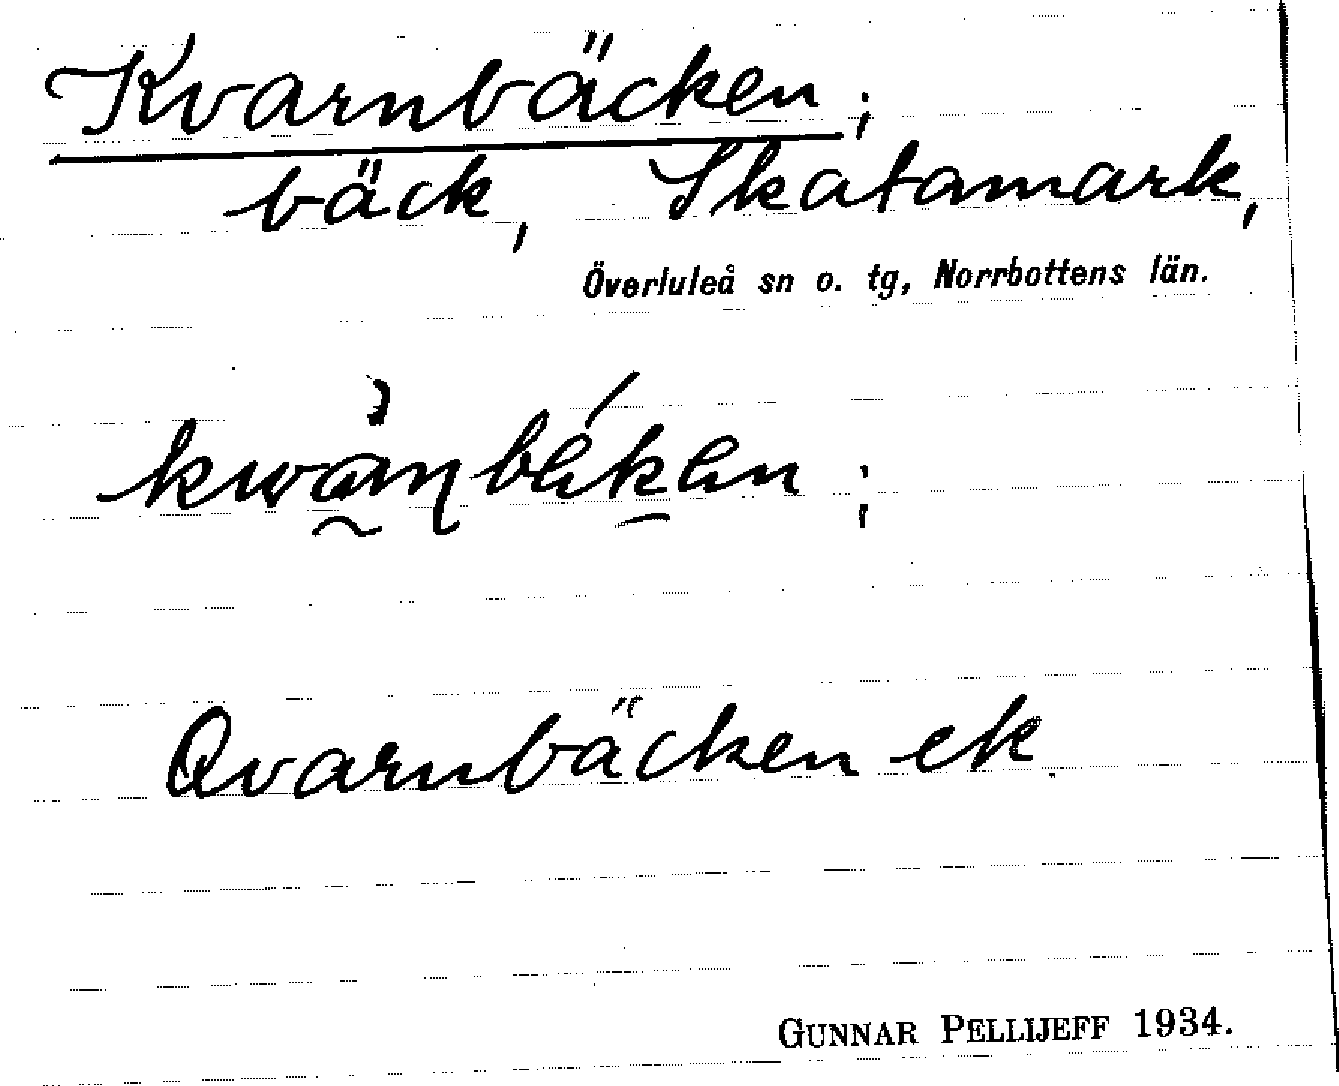 Kvarnbäcken;
bäck, Skatamark,
Överluleå sn o. tg, Norrbottens län.
Qvarnbäcken ek.
GUNNAR PELLIJEFF 1934.